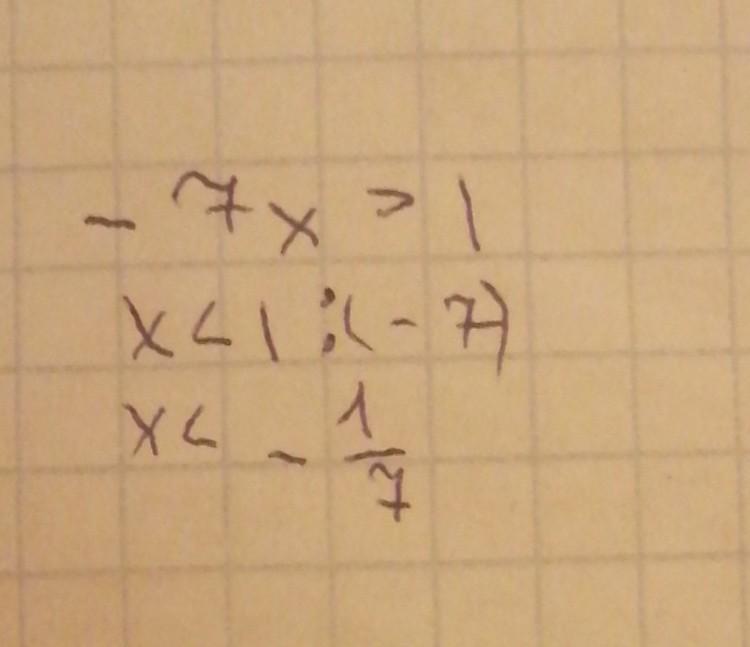 - 7x > 1
x < 1 : (- 7)
x < - 1/7